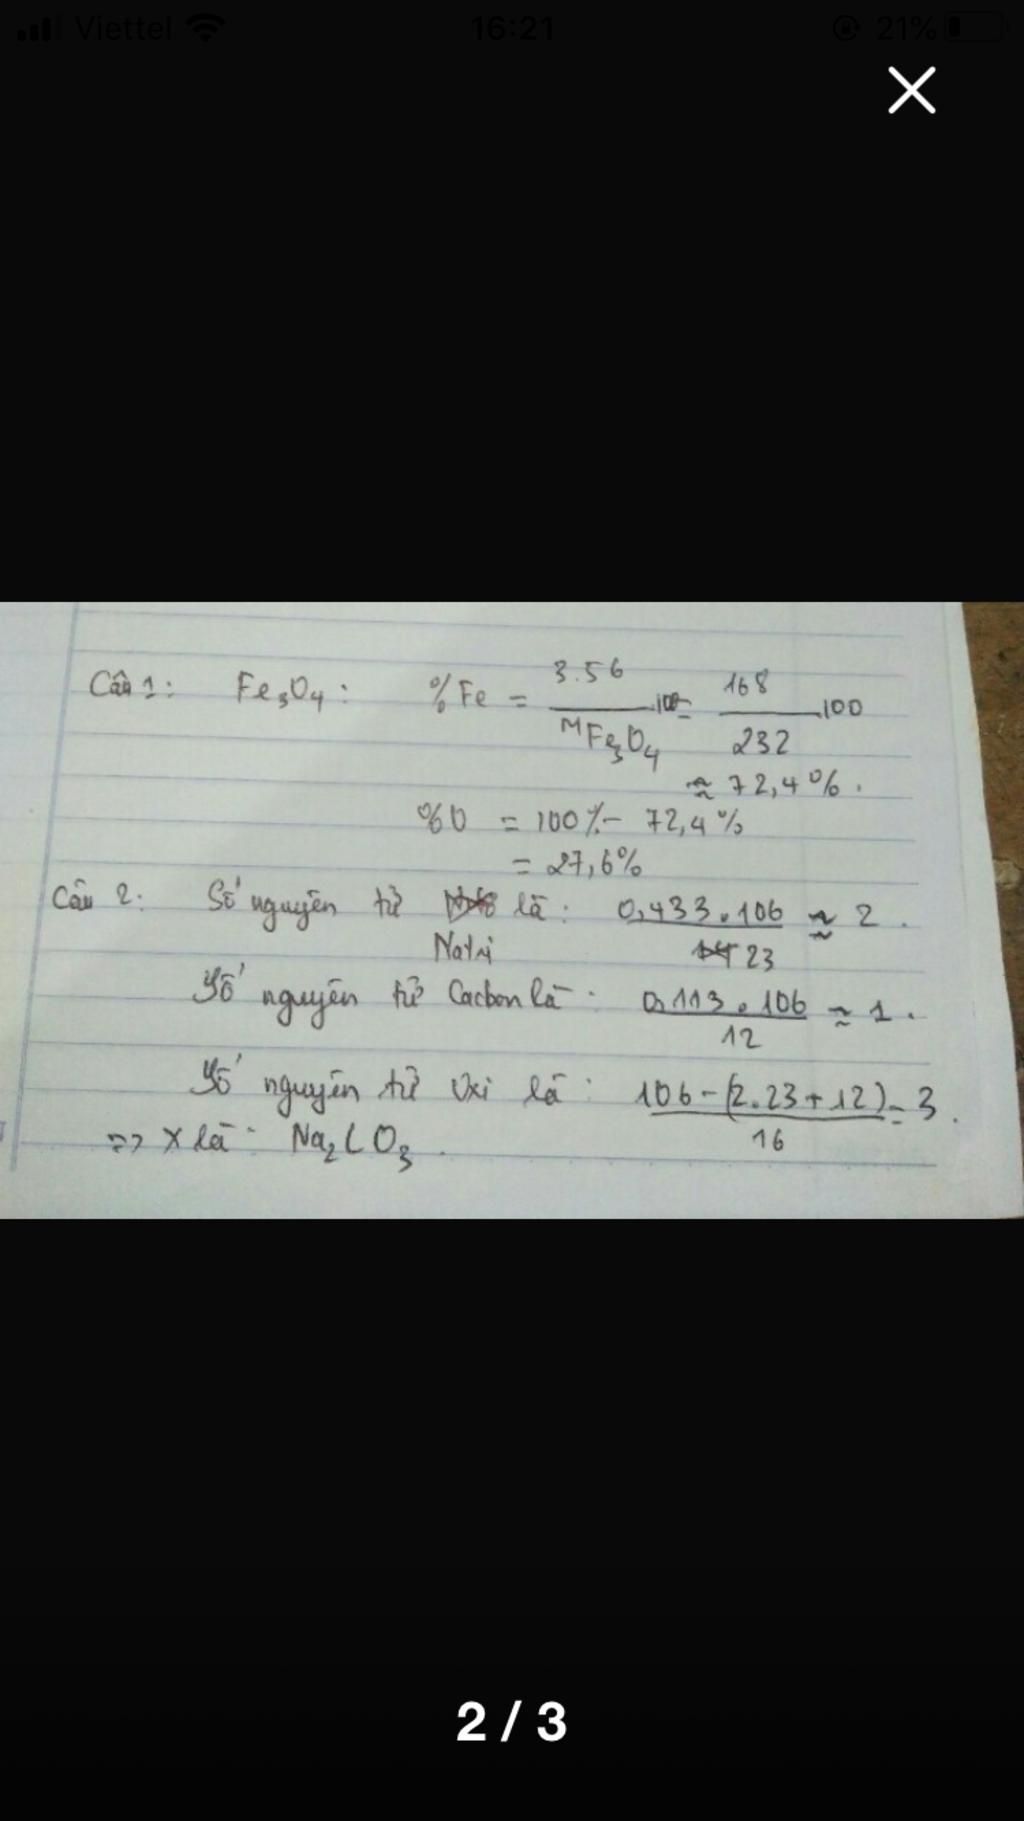 Viettel 16:21 21%
Câu 1: Fe₃O₄: %Fe = 3.56 / MFe₃O₄ .100 = 168 / 232 .100
≈ 72,4%.
%O = 100% - 72,4%
= 27,6%
Câu 2: Số nguyên tử là: 0,433.106 / 23 ≈ 2.
Natri
Số nguyên tử Cacbon là: 0,113.106 / 12 ≈ 1.
Số nguyên tử Oxi là: 106-(2.23+12) / 16 = 3.
=> X là: Na₂CO₃.
2 / 3